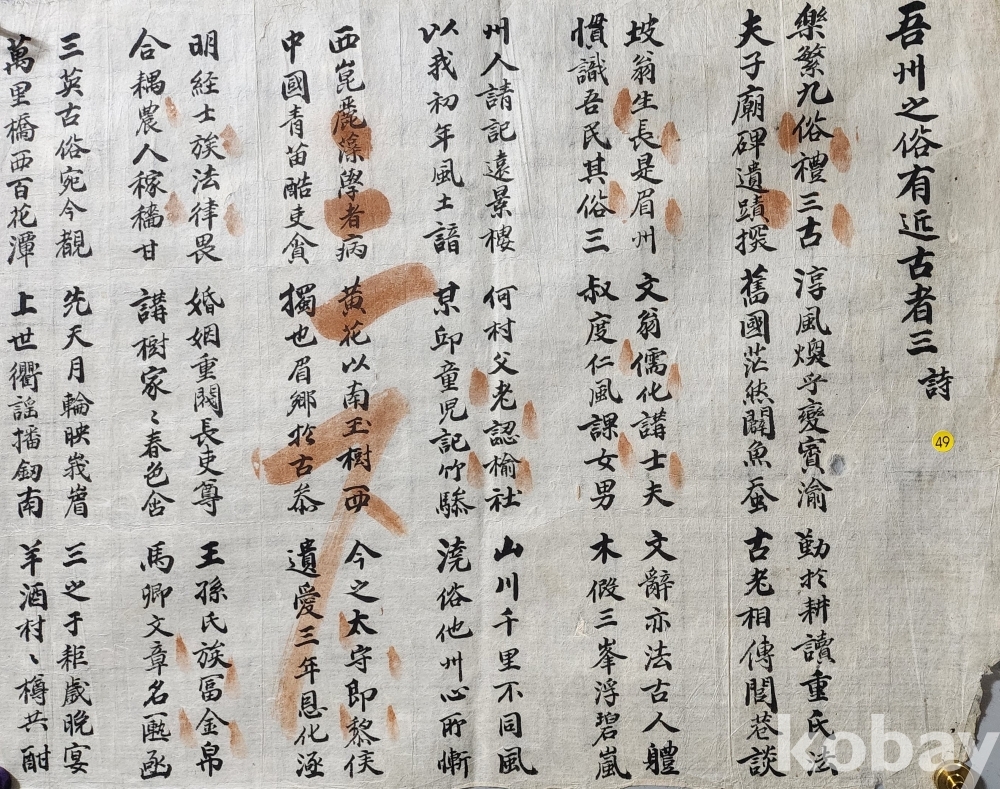 吾州之俗有近古者三 詩
樂繁九俗禮三古 淳風煥乎變賓渝 勤於耕讀重氏法
夫子廟碑遺蹟撰 舊國茫然闢魚蚕 古老相傳閭巷談
坡翁生長是眉州 文翁儒化講士夫 文辭亦法古人軆
慣識吾民其俗三 叔度仁風課女男 木假三峯浮碧嵐
州人請記遠景樓 何村父老認榆社 山川千里不同風
以我初年風土諳 某邱童児記竹驂 澆俗他州心所慚
西崑麗藻學者病 黃花以南玉樹西 今之太守即黎侯
中國青苗酷吏貪 獨也眉鄉於古恭 遺愛三年恩化涵
明經士族法律畏 婚姻重閥長吏尊 王孫氏族冨金帛
合耦農人稼穡甘 講樹家〻春色含 馬卿文章名匭函
三英古俗宛今覩 先天月輪映峩眉 三之于耟戲晚宴
萬里橋西百花潭 上世衢謠播劒南 羊酒村〻樽共酣
49
kobay